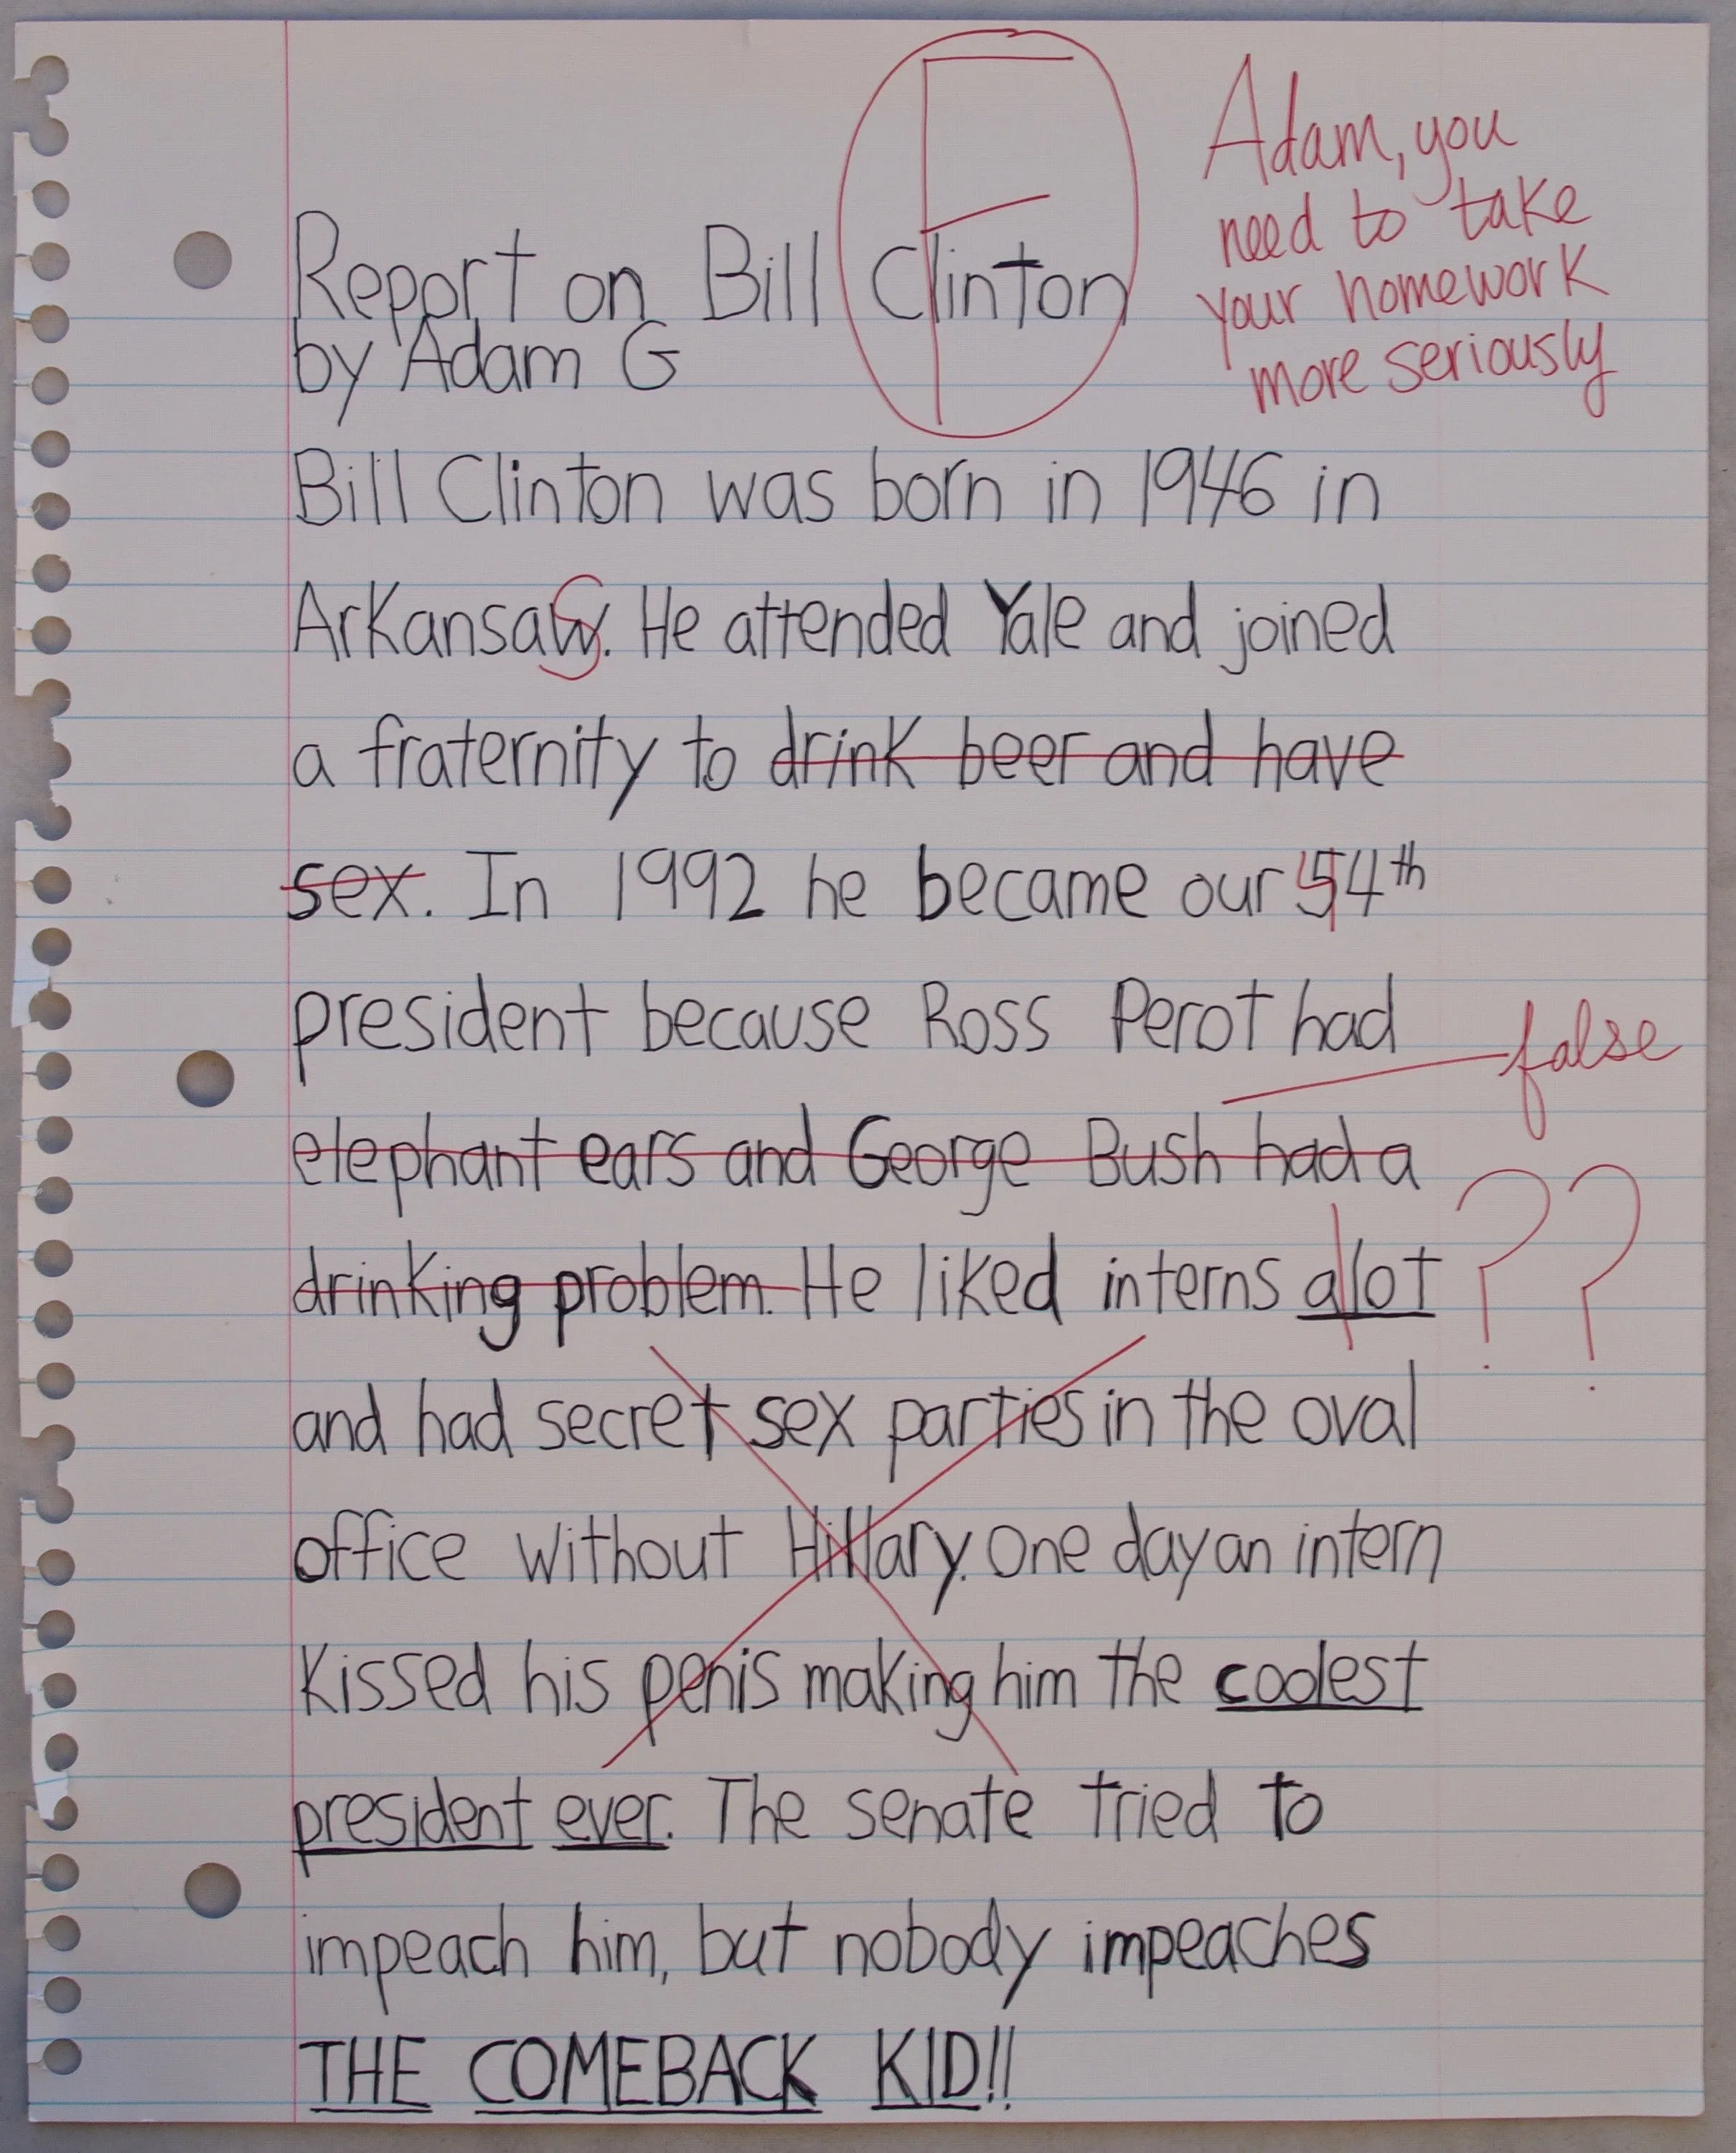 F
Adam, you
need to take
your homework
more seriously
Report on Bill Clinton
by Adam G
Bill Clinton was born in 1946 in
Arkansaw. He attended Yale and joined
S
a fraternity to drink beer and have
sex. In 1992 he became our 54th
4
president because Ross Perot had
false
elephant ears and George Bush had a
drinking problem. He liked interns alot
??
and had secret sex parties in the oval
office without Hillary. One day an intern
kissed his penis making him the coolest
president ever. The senate tried to
impeach him, but nobody impeaches
THE COMEBACK KID!!